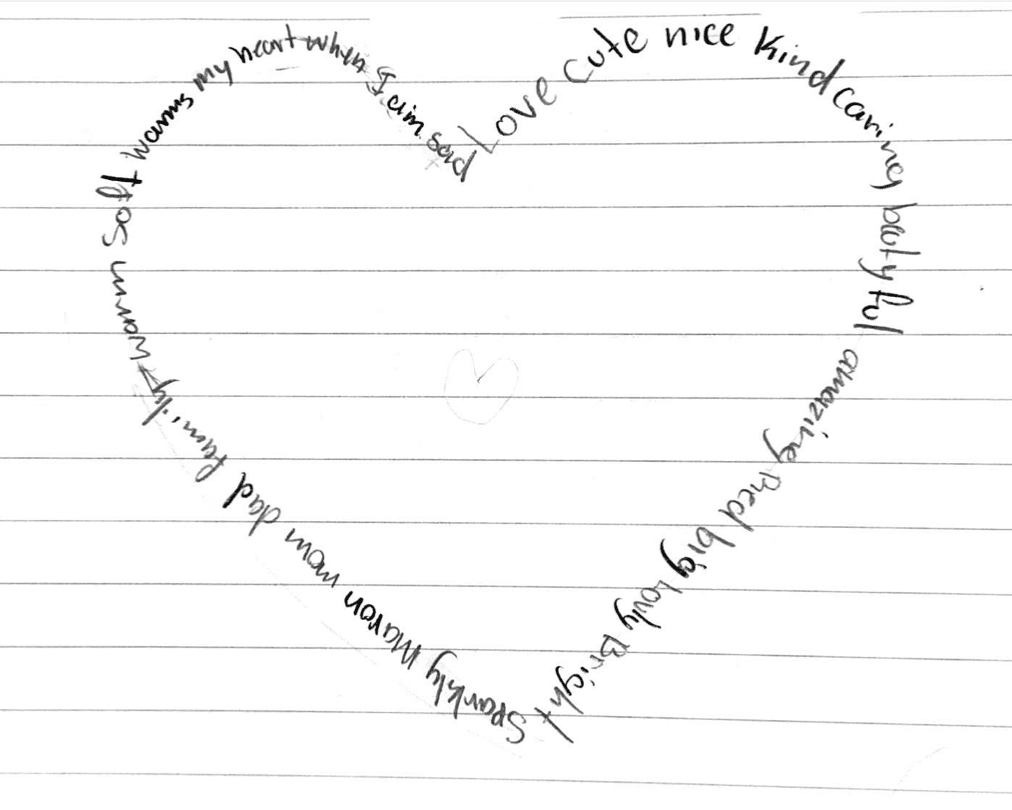 Love cute nice kind caring beatyful amazing Red big lovly Bright Sparkly Maron mom dad family warm soft warms my heart when I aim sad